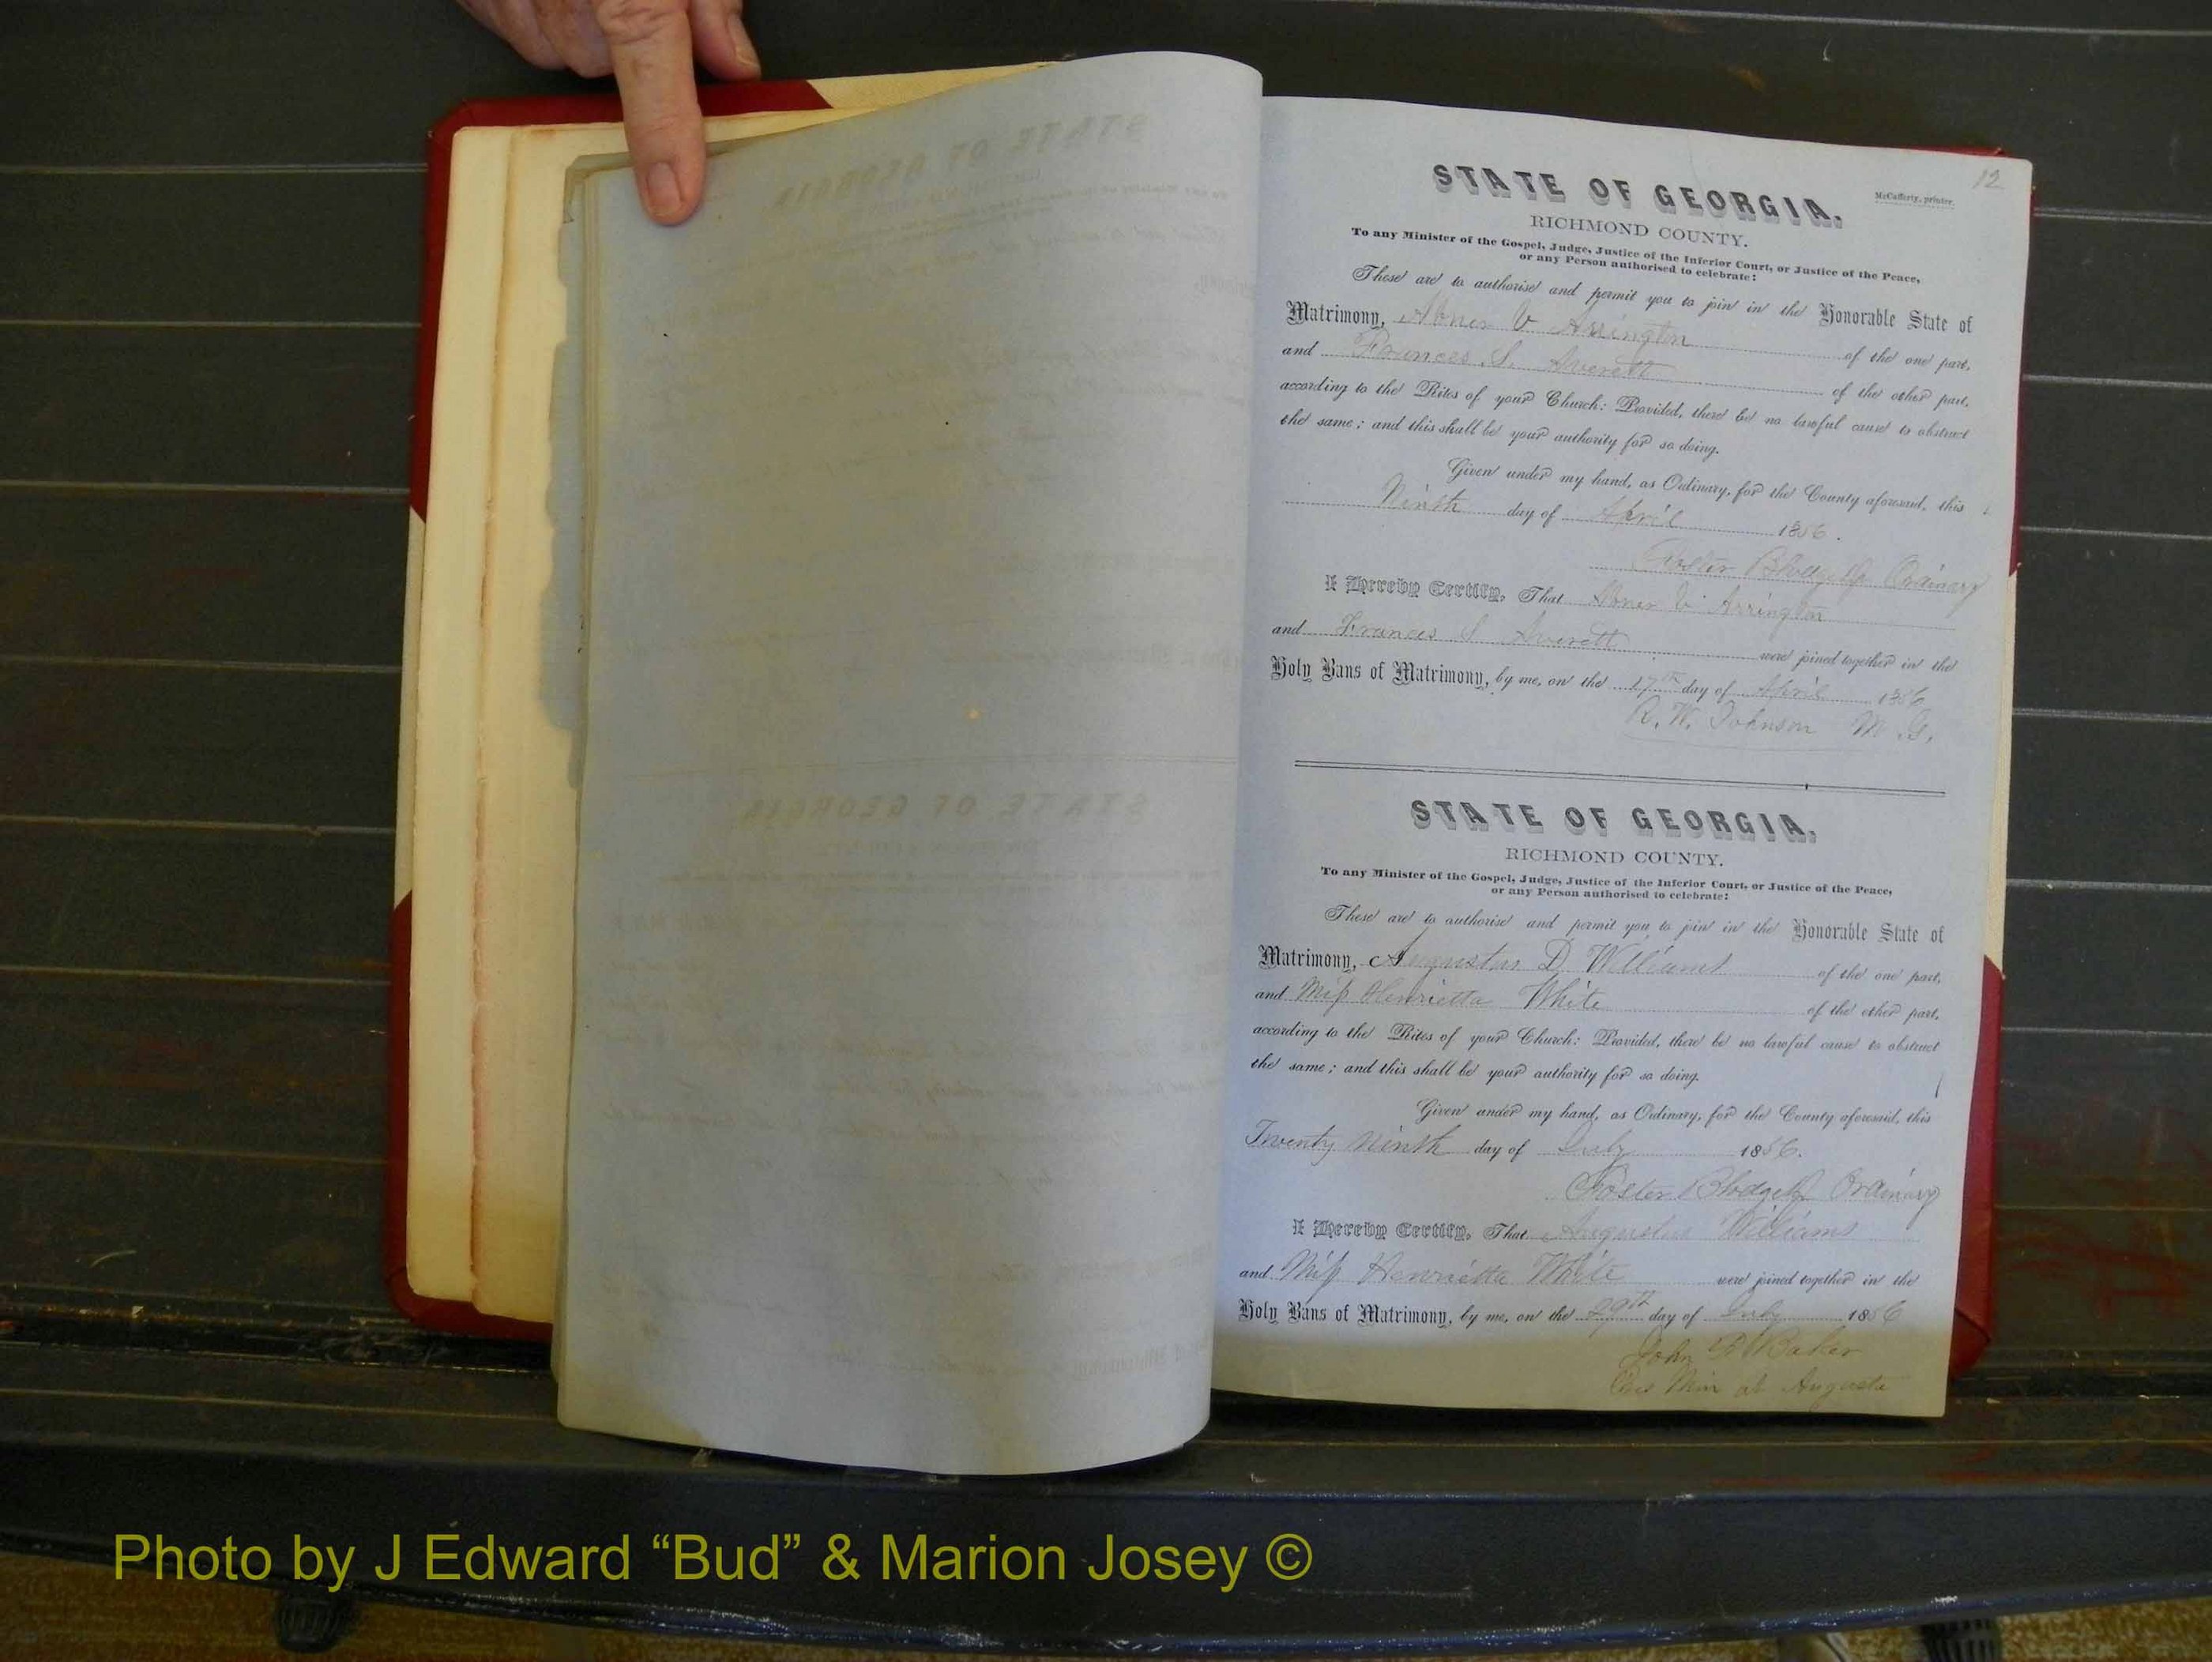 12
McCafferty, printer.
STATE OF GEORGIA,
RICHMOND COUNTY.
To any Minister of the Gospel, Judge, Justice of the Inferior Court, or Justice of the Peace,
or any Person authorised to celebrate:
These are to authorise and permit you to join in the Honorable State of
Matrimony, Abner V Arrington of the one part,
and Frances S. Averett of the other part,
according to the Rites of your Church: Provided, there be no lawful cause to obstruct
the same; and this shall be your authority for so doing.
Given under my hand, as Ordinary, for the County aforesaid, this
Ninth day of April 1856.
Foster Blodgett Ordinary
I Hereby Certify, That Abner V Arrington
and Frances S Averett were joined together in the
Holy Bans of Matrimony, by me, on the 17th day of April 1856
R. W. Johnson M. G.
STATE OF GEORGIA,
RICHMOND COUNTY.
To any Minister of the Gospel, Judge, Justice of the Inferior Court, or Justice of the Peace,
or any Person authorised to celebrate:
These are to authorise and permit you to join in the Honorable State of
Matrimony, Augustus D Williams of the one part,
and Miss Henrietta White of the other part,
according to the Rites of your Church: Provided, there be no lawful cause to obstruct
the same; and this shall be your authority for so doing.
Given under my hand, as Ordinary, for the County aforesaid, this
Twenty Ninth day of July 1856.
Foster Blodgett Ordinary
I Hereby Certify, That Augustus Williams
and Miss Henrietta White were joined together in the
Holy Bans of Matrimony, by me, on the 29th day of July 1856
John Baker
Min at Augusta
Photo by J Edward “Bud” & Marion Josey ©